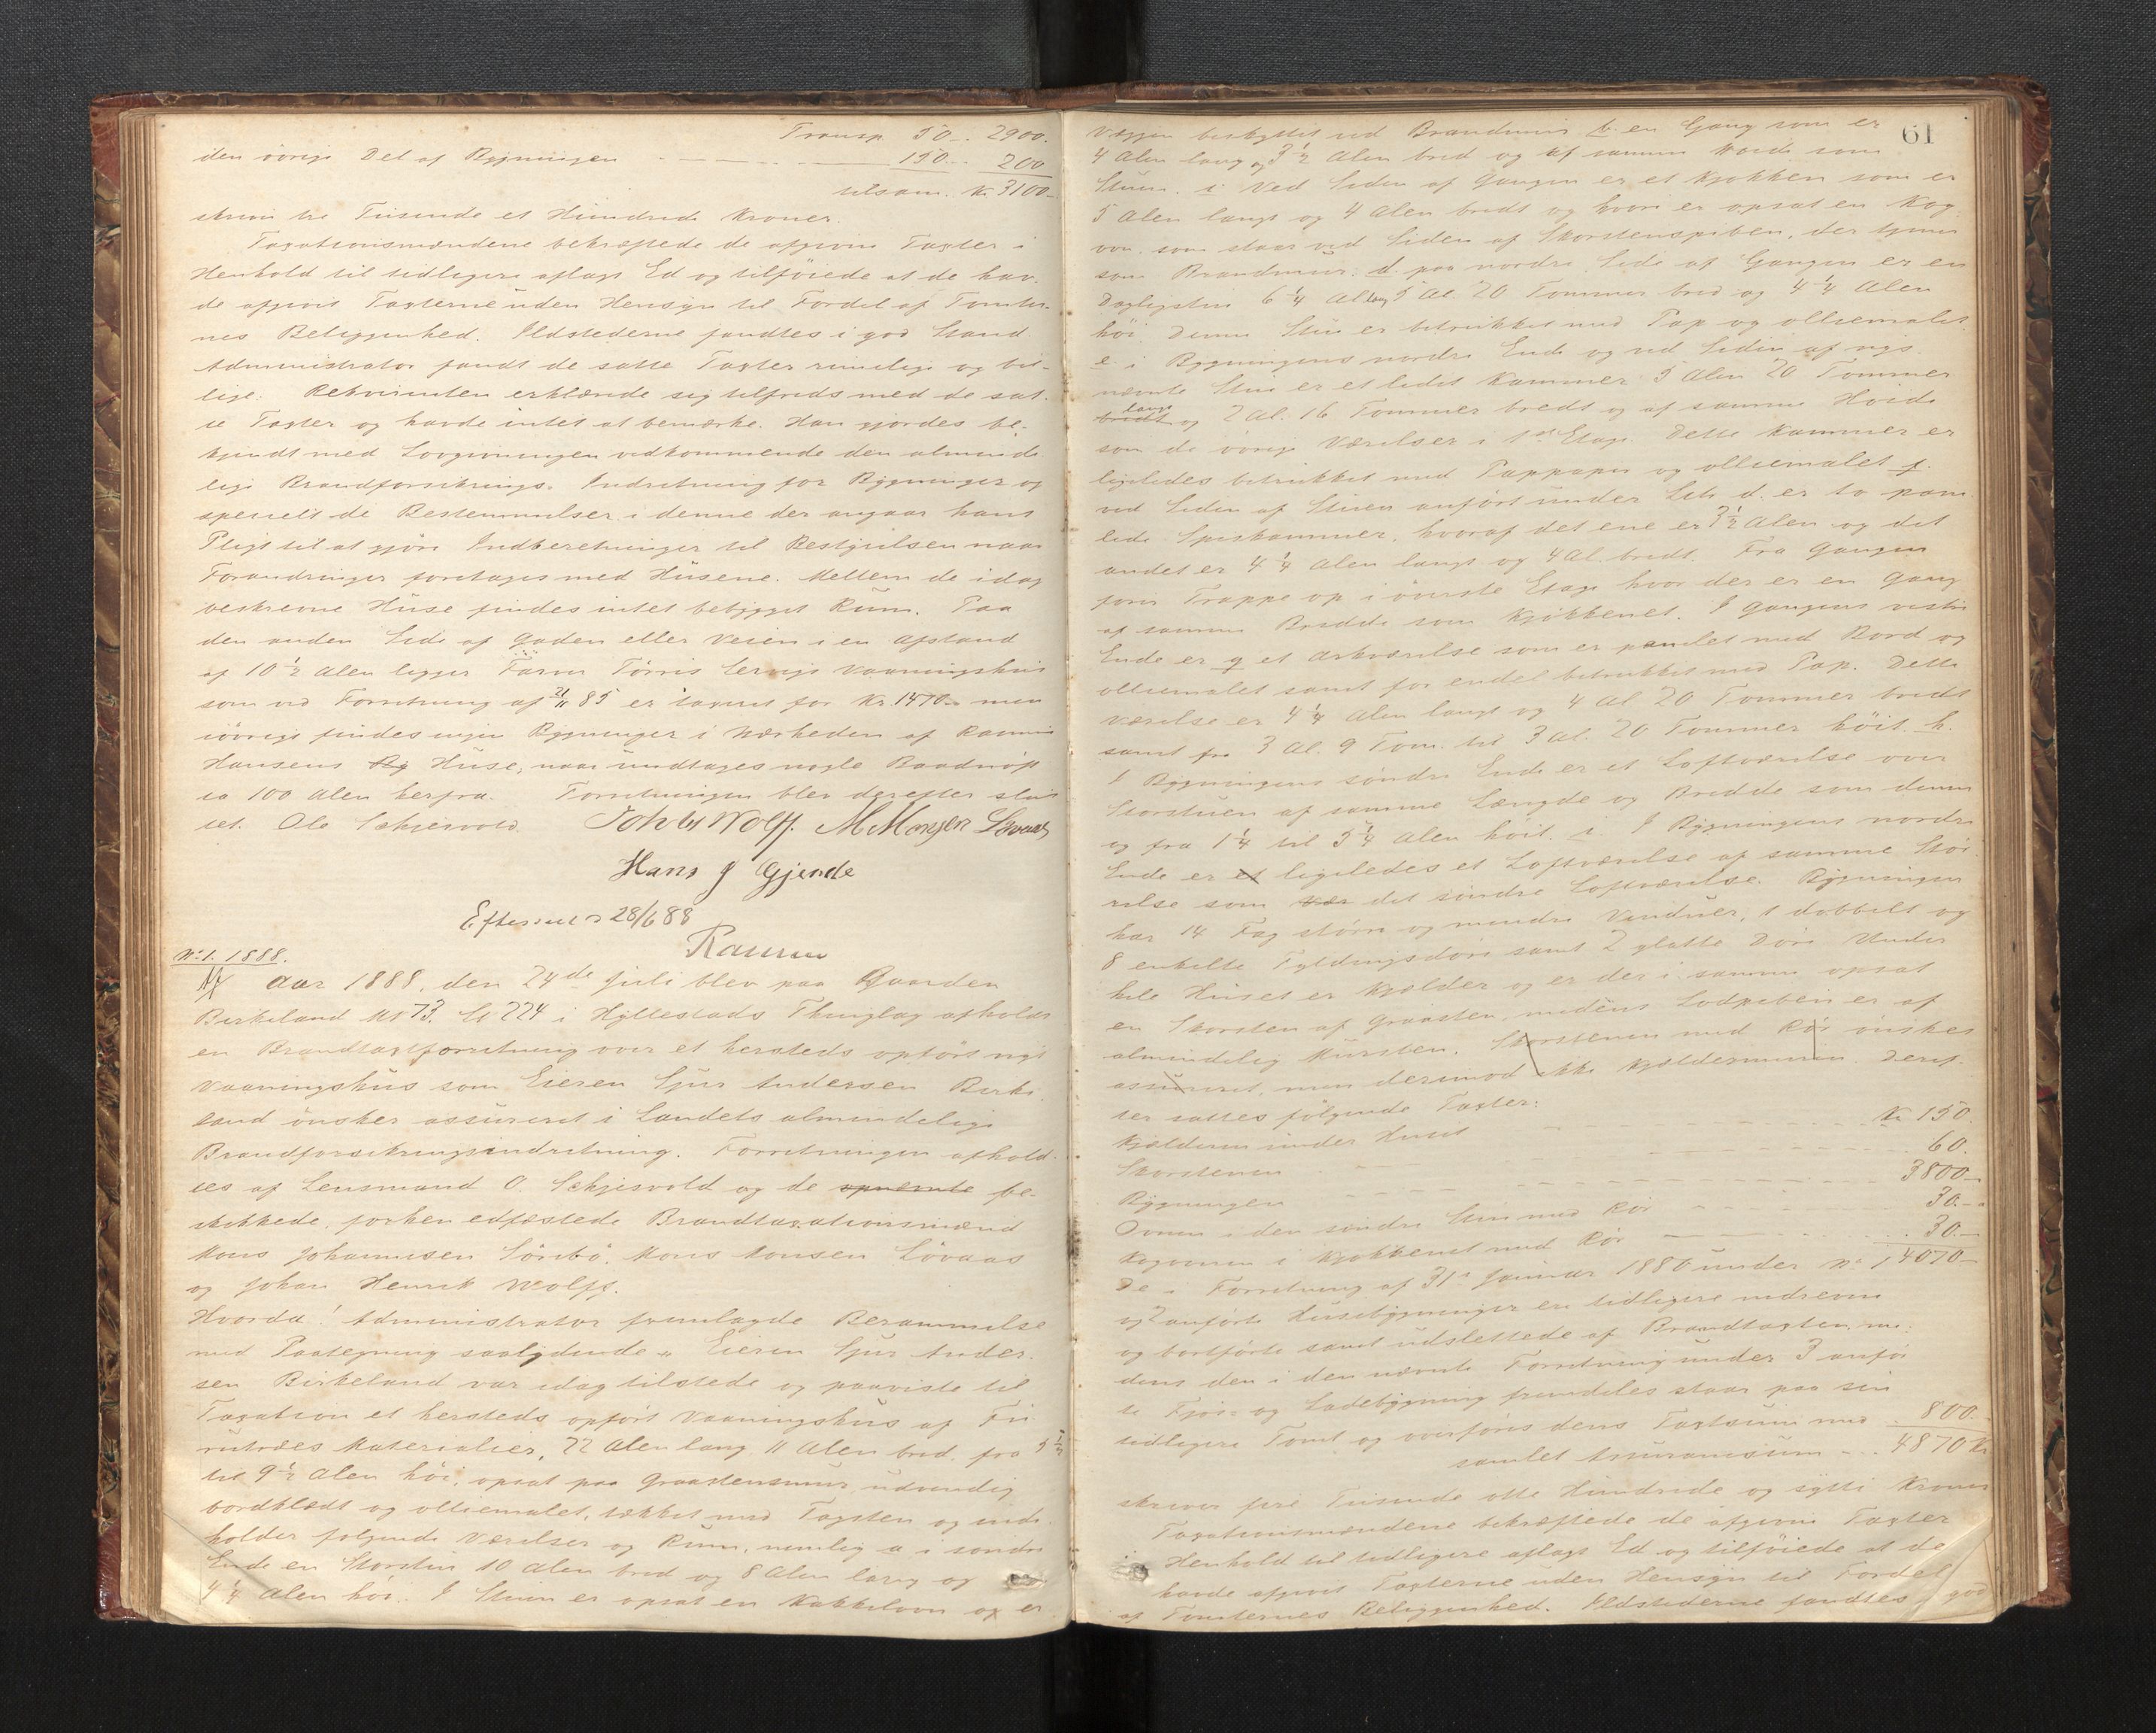 Transp 50.- 2900.
den övrige Del af Bygningen 150.- 200
tilsam. Kr 3100-
skriver tre Tusende et Hundrede Kroner.
Taxationsmændene bekræftede de afgivne Taxter i
Henhold til tidligere aflagt Ed og tilföiede at de hav-
de afgivet Taxterne uden Hensyn til Fordel af Tomter-
nes Beliggenhed. Ildstederne fandtes i god Stand.
Administrator fandt de satte Taxter rimelige og bil-
lige. Rekvirenten erklærede sig tilfreds med de sat-
te Taxter og havde intet at bemærke. Han gjordes be-
kjendt med Lovgivningen vedkommende den alminde-
lige Brandforsikrings-Indretning for Bygninger og
specielt de Bestemmelser i denne der angaar hans
Pligt til at gjöre Indberetninger til Bestyrelsen naar
Forandringer foretages med Husene. Mellem de idag
beskrevne Huse findes intet bebygget Rum. Paa
den anden Side af Gaden eller Veien i en Afstand
af 10 1/2 Alen ligger Farver Törris Lervigs Vaaningshus
som ved Forretning af 21/11 85 er taxeret for Kr. 1470.- men
iövrigt findes ingen Bygninger i Nærheden af
Hansens Huse, naar undtages nogle Baadnöst
ca 100 Alen herfra. Forretningen blev derefter slut-
tet. Ole Schjesvold. Joh H Wolff. M Monsen Lövaas
Hans J Gjende
Efterseet 28/6 88
No 1. 1888.
Aar 1888, den 24de Juli blev paa Gaarden
Birkeland M No 73. L No 224 i Hyllestads Thinglag afholdt
en Brandtaxtforretning over et hersteds opfört nyt
Vaaningshus som Eieren Sjur Andersen Birke-
land önsker assureret i Landets almindelige
Brandforsikringsindretning. Forretningen afhold-
tes af Lensmand O. Schjesvold og de opnævnte be-
skikkede, forhen edfæstede Brandtaxationsmænd
Mons Johannesen Sörebö, Mons Monsen Lövaas
og Johan Henrik Wolff.
Hvorda! Administrator fremlagde Berammelse
med Paategning saalydende " Eieren Sjur Ander-
sen Birkeland var idag tilstede og paaviste til
Taxation et hersteds opfört Vaaningshus af Fu-
rutræes Materialier, 22 Alen lang 11 Alen bred, fra 5 1/2
til 9 1/2 Alen höi, opsat paa Graastensmur, udvendig
bordklædt og oliemalet, tækket med Tagsten og inde-
holder folgende Værelser og Rum, nemlig a i söndre
Ende en Storstue 10 Alen bred og 8 Alen lang og
4 1/4 Alen höi. I Stuen er opsat en Kakkelovn og er
61
Væggen beskyttet ved Brandmur b. en Gang som er
4 Alen lang og 3 1/2 Alen bred og af samme Höide som
Stuen. c Ved Siden af Gangen er et Kjökken som er
5 Alen langt og 4 Alen bredt og hvori er opsat en Kog-
ovn som staar ved Siden af Skorstenspiben, der tjener
som Brandmur. d. paa nordre Side af Gangen er en
Dagligstue 6 1/4 Al lang 5 Al. 20 Tommer bred og 4 1/4 Alen
höi. Denne Stue er betrukket med Pap og oliemalet.
e i Bygningens nordre Ende og ved Siden af nys-
nævnte Stue er et lidet Kammer 5 Alen 20 Tommer
bredt langt og 2 Al. 16 Tommer bredt og af samme Höide
som de övrige Værelser i 1ste Etage. Dette Kammer er
ligeledes betrukket med Pappapir og oliemalet f.
ved Siden af Stuen anfört under Litr d. er to pane-
lede Spiskammer, hvoraf det ene er 3 1/2 Alen og det
andet er 4 1/4 Alen langt og 4 Al. bredt. Fra Gangen
förer Trappe op i överste Etage hvor der er en Gang
af samme Bredde som Kjökkenet. I Gangens vestre
Ende er g et Arkværelse som er panelet med Bord og
oliemalet samt for endel betrukket med Pap. Dette
Værelse er 4 1/4 Alen langt og 4 Al 20 Tommer bredt
samt fra 3 Al. 9 Tom. til 3 Al. 20 Tommer höit. h.
I Bygningens söndre Ende er et Loftværelse over
Storstuen af samme Længde og Bredde som denne
og fra 1 1/4 til 5 1/4 Alen höit. i I Bygningens nordre
Ende er et ligeledes et Loftværelse af samme Stör-
relse som det söndre Loftværelse. Bygningen
har 14 Fag större og mindre Vinduer, 1 dobbelt og
8 enkelte Fyldingsdöre samt 2 glatte Döre Under
hele Huset er Kjælder og er der i samme opsat
en Skorsten af Graasten, medens Lodpiben er af
almindelig Mursten. Skorstenen med Rör önskes
assureret, men derimod ikke Kjældermuren Deref-
ter sattes fölgende Taxter:
Kjælderen under Huset Kr 150.
Skorstenen 60.
Bygningen 3800-
Ovnen i den söndre Stue med Rör 30.-
Kogovnen i Kjökkenet med Rör 30.-
4070-
De i Forretning af 31te Januar 1880 under No 1
og 2 anförte Husebygninger ere tidligere nedrevne
og bortförte samt udslettede af Brandtaxten, me-
dens den i den nævnte Forretning under 3 anför-
te Fjös- og Ladebygning fremdeles staar paa sin
tidligere Tomt og overföres dens Taxtsum med 800.-
samlet Assurancesum 4870 Kr
skriver fire Tusende otte Hundrede og sytti Kroner
Taxationsmændene bekræftede de afgivne Taxter
i Henhold til tidligere aflagt Ed og tilföiede at de
havde afgivet Taxterne uden Hensyn til Fordel
af Tomternes Beliggenhed. Ildstederne fandtes i god